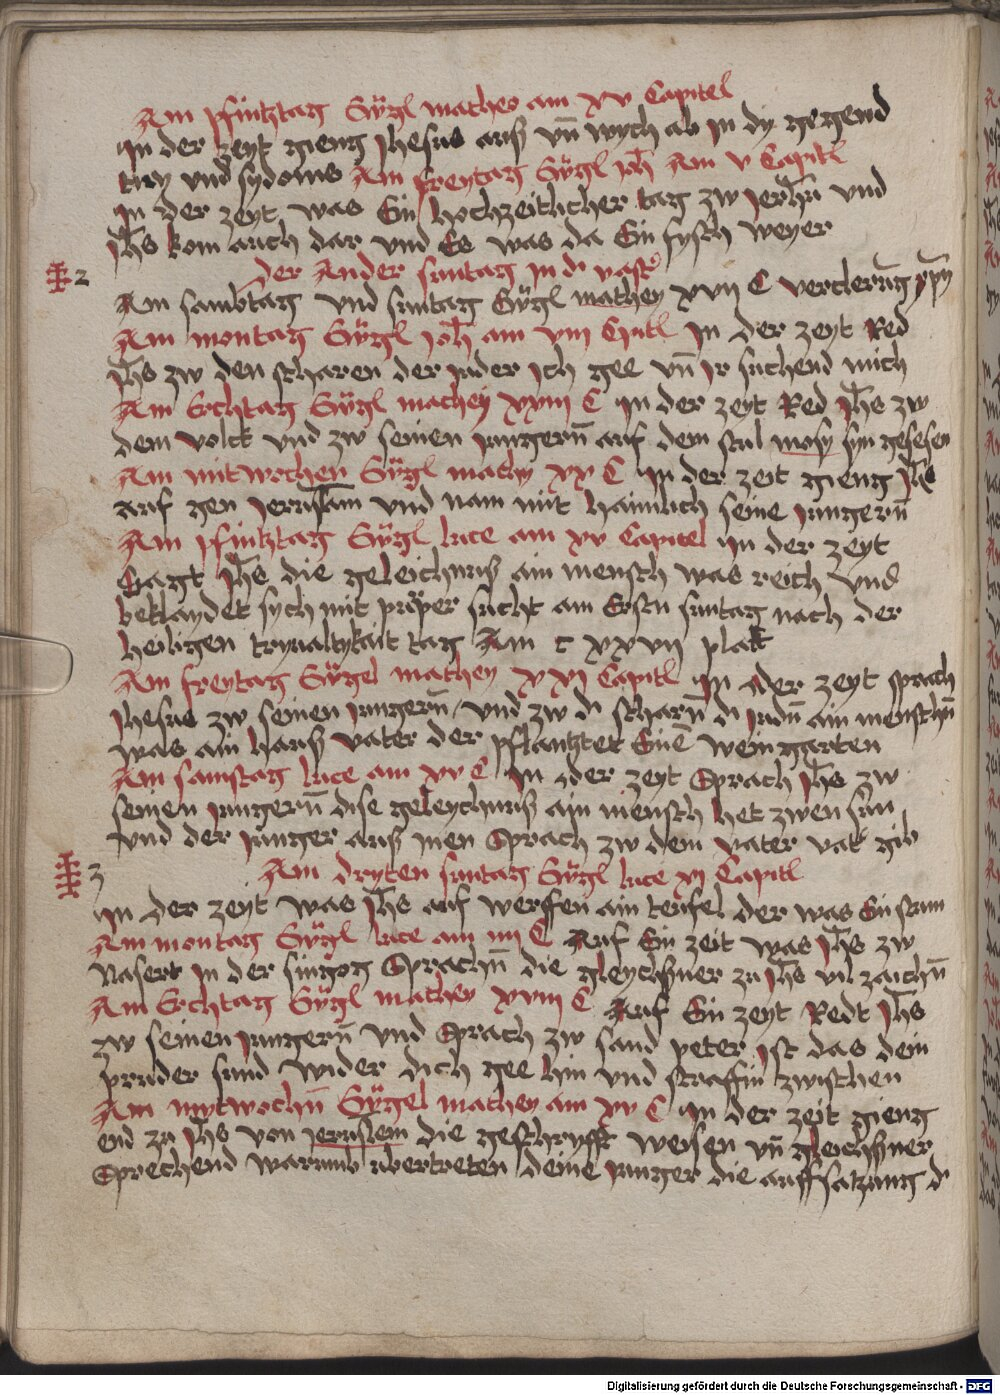 Am pfintztag Ewgl matheo am xv Capitel
In der zeyt gieng Jhesus aus vn wych ab in dy gegend
tiry vnd sydonis Am freytag Ewgl joh Am v Capitl
In der zeyt was Ein hochzeitlicher tag zw Jerhm vnd
Jhs kom auch dar vnd Es was da Ein fysch weyer
2 der Ander suntag in d vast
Am sambtag vnd suntag Ewgl mathey xvii C verclerung xpy
Am montag Ewgl joh am viii Cpitl In der zeyt Red
Jhs zw den scharen der juden Ich gee vn Ir suchend mich
Am Erchtag Ewgl mathey xxiii C In der zeyt Red Jhs zw
dem volck vnd zw seinen jungern auf dem stul mosy syn gesesen
Am mitwochen Ewgl mathy xx C In der zeit gieng Jhs
auf gen Jerusalam vnd nam mit haimlich seine jungern
Am pfintztag Ewgl luce am xv Capitel In der zeyt
Sagt Jhs die geleichnus ain mensch was reich vnd
beklaydet sych mit purper sucht am Ersten suntag nach der
heiligen tryualtykait tag Am c xxvii plat
Am freytag Ewgel mathey xxi Capitl In der zeyt sprach
Jhesus zw seinen jungern vnd zw d scharn d judn ain menschn
was ain haus vater der pflantztet Eine weingarten
Am samstag luce am xv C In der zeyt Sprach Jhs zw
seinen jungern dise geleychnus ain mensch het zwen sun
vnd der junger aus inen Sprach zw dem vater vat gib
3 Am dryten suntag Ewgl luce xi Capitl
In der zeyt was Jhs auf werffen ain teufel der was Ein stum
Am montag Ewgl luce am iiii C Auf Ein zeit was Jhs zw
Nasert in der singog Sprachn die gleychsner zu Jhs vil zaichn
Am Erchtag Ewgl mathey xviii C Auf Ein zeyt Redt Jhs
zw seinen jungern vnd Sprach zw sand peter ist das dein
pruder sund wider dich gee hin vnd straff in zwischen
Am mytwochn Ewgel mathey am xv C In der zeit gieng
end zu Jhs von Jerusalem die geschryfft weisen vn gleichsner
Sprechend warumb ubertreten deine junger die auffsatzung d
Digitalisierung gefördert durch die Deutsche Forschungsgemeinschaft - DFG